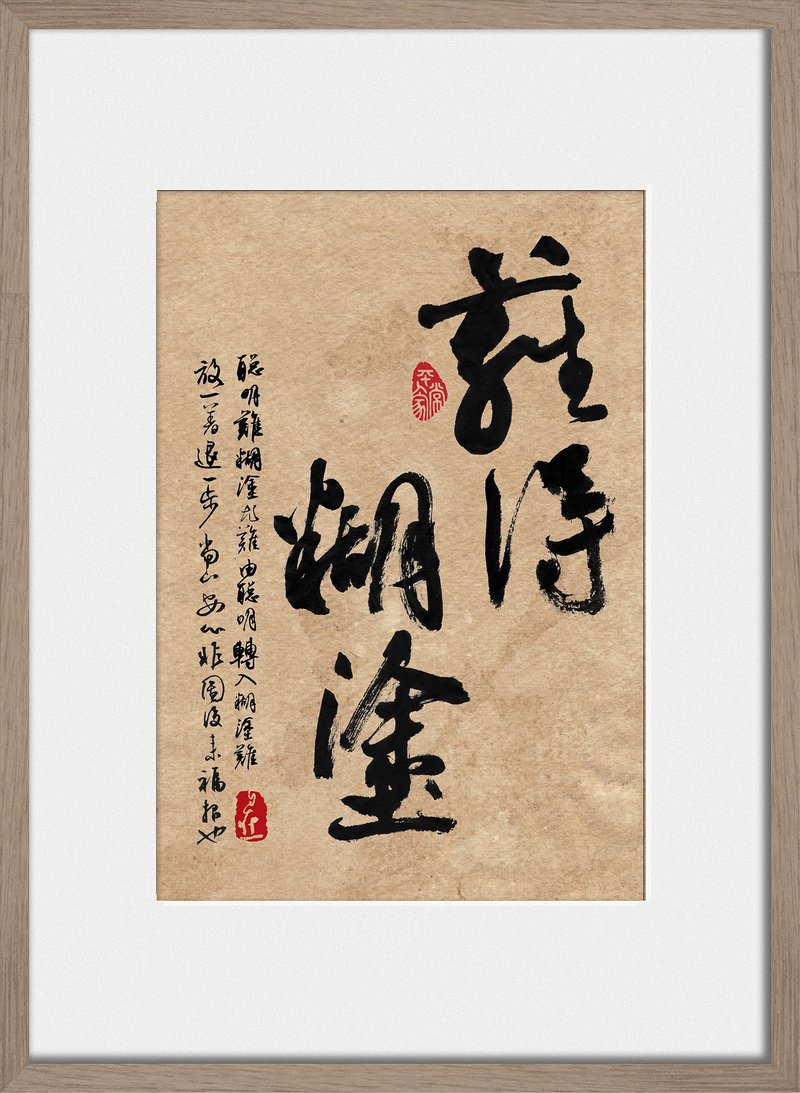 難得
糊塗
聰明難糊塗尤難由聰明轉入糊塗難
放一著退一步當下安心非圖後來福報也